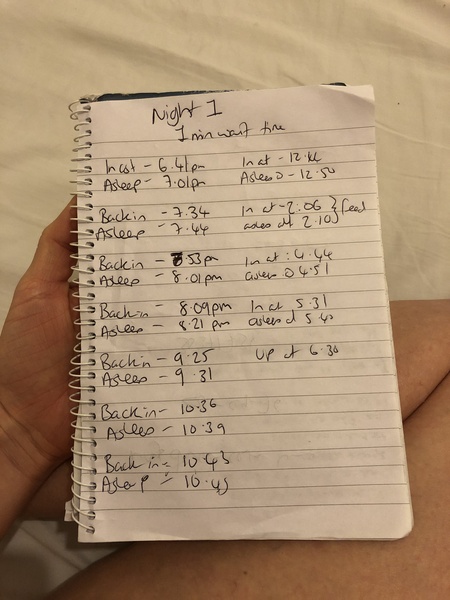 Night 1
1 min wait time
In cot - 6.41pm
Asleep - 7.01pm
Back in - 7.34
Asleep - 7.44
Back in - 53pm
Asleep - 8.01pm
Back in - 8.09pm
Asleep - 8.21 pm
Back in - 9.25
Asleep - 9.31
Back in - 10.36
Asleep - 10.39
Back in - 10.43
Asleep - 10.45
In at - 12.
Asleep - 12.50
In at - 2.06 } feed
asleep at 2.10
In at : 4.44
asleep 4.51
In at 5.31
asleep at 5.40
Up at 6.30